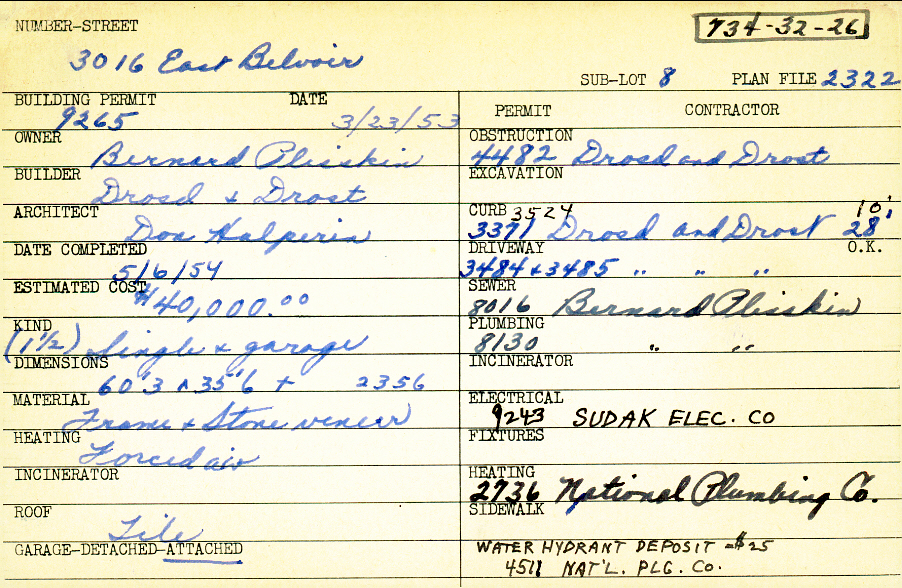 NUMBER-STREET
734-32-26
3016 East Belvoir
SUB-LOT 8 PLAN FILE 2322
BUILDING PERMIT DATE
9265 3/23/53
OWNER
Bernard Plisskin
BUILDER
Drosd & Drost
ARCHITECT
Don Halperin
DATE COMPLETED
5/6/54
ESTIMATED COST
$40,000.00
KIND
(1 1/2) Single & garage
DIMENSIONS
60'3 x 35'6 + 2356
MATERIAL
Frame & Stone veneer
HEATING
Forced air
INCINERATOR
ROOF
Tile
GARAGE-DETACHED-ATTACHED
PERMIT CONTRACTOR
OBSTRUCTION
4482 Drosd and Drost
EXCAVATION
CURB 3524 10'
3371 Drosd and Drost 28'
DRIVEWAY O.K.
3484 & 3485 " " "
SEWER
8016 Bernard Plisskin
PLUMBING
8130 " "
INCINERATOR
ELECTRICAL
9243 SUDAK ELEC. CO
FIXTURES
HEATING
2736 National Plumbing Co.
SIDEWALK
WATER HYDRANT DEPOSIT - $25
4511 NAT'L. PLG. CO.